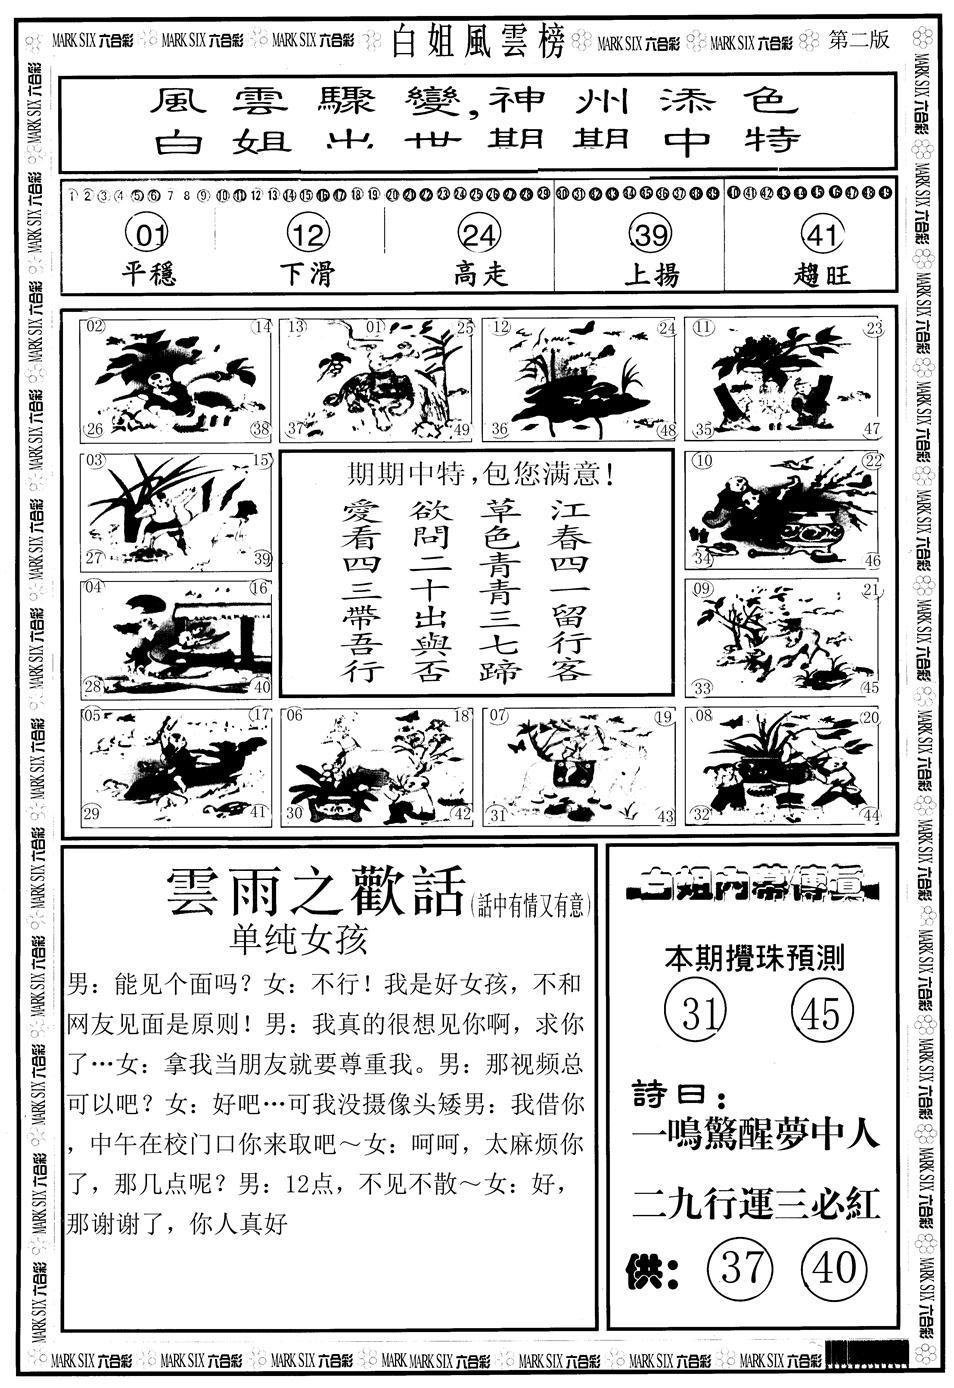 MARK SIX 六合彩 MARK SIX 六合彩 MARK SIX 六合彩 白姐風雲榜 MARK SIX 六合彩 MARK SIX 六合彩 第二版
風雲驟變,神州添色
白姐出世期期中特
1 2 3 4 5 6 7 8 9 10 11 12 13 14 15 16 17 18 19 20 21 22 23 24 25 26 27 28 29 30 31 32 33 34 35 36 37 38 39 40 41 42 43 44 45 46 47 48 49
01 12 24 39 41
平穩 下滑 高走 上揚 趨旺
02 14 13 01 25 12 24 11 23
26 38 37 49 36 48 35 47
03 15
27 39
04 16
28 40
期期中特,包您满意!
江春四一留行客
草色青青三七蹄
欲問二十出與否
愛看四三帶吾行
10 22
34 46
09 21
33 45
05 17 06 18 07 19 08 20
29 41 30 42 31 43 32 44
雲雨之歡話(話中有情又有意)
单纯女孩
男：能见个面吗？女：不行！我是好女孩，不和
网友见面是原则！男：我真的很想见你啊，求你
了…女：拿我当朋友就要尊重我。男：那视频总
可以吧？女：好吧…可我没摄像头矮男：我借你
，中午在校门口你来取吧～女：呵呵，太麻烦你
了，那几点呢？男：12点，不见不散～女：好，
那谢谢了，你人真好
白姐内幕傳真
本期攪珠預測
31 45
詩曰：
一鳴驚醒夢中人
二九行運三必紅
供： 37 40
MARK SIX 六合彩 MARK SIX 六合彩 MARK SIX 六合彩 MARK MARK SIX 六合彩 MARK SIX 六合彩 MARK SIX 六合彩 MARK SIX 六合彩